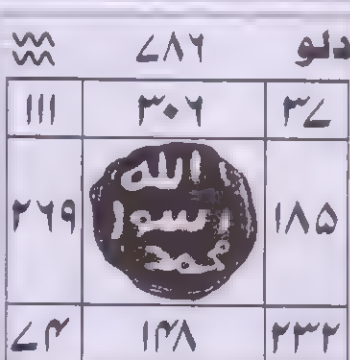 دلو ۷۸۶ ♒
۳۷ ۳۰۶ ۱۱۱
الله
رسول
محمد
۱۸۵ ۲۶۹
۲۳۲ ۱۴۸ ۷۴